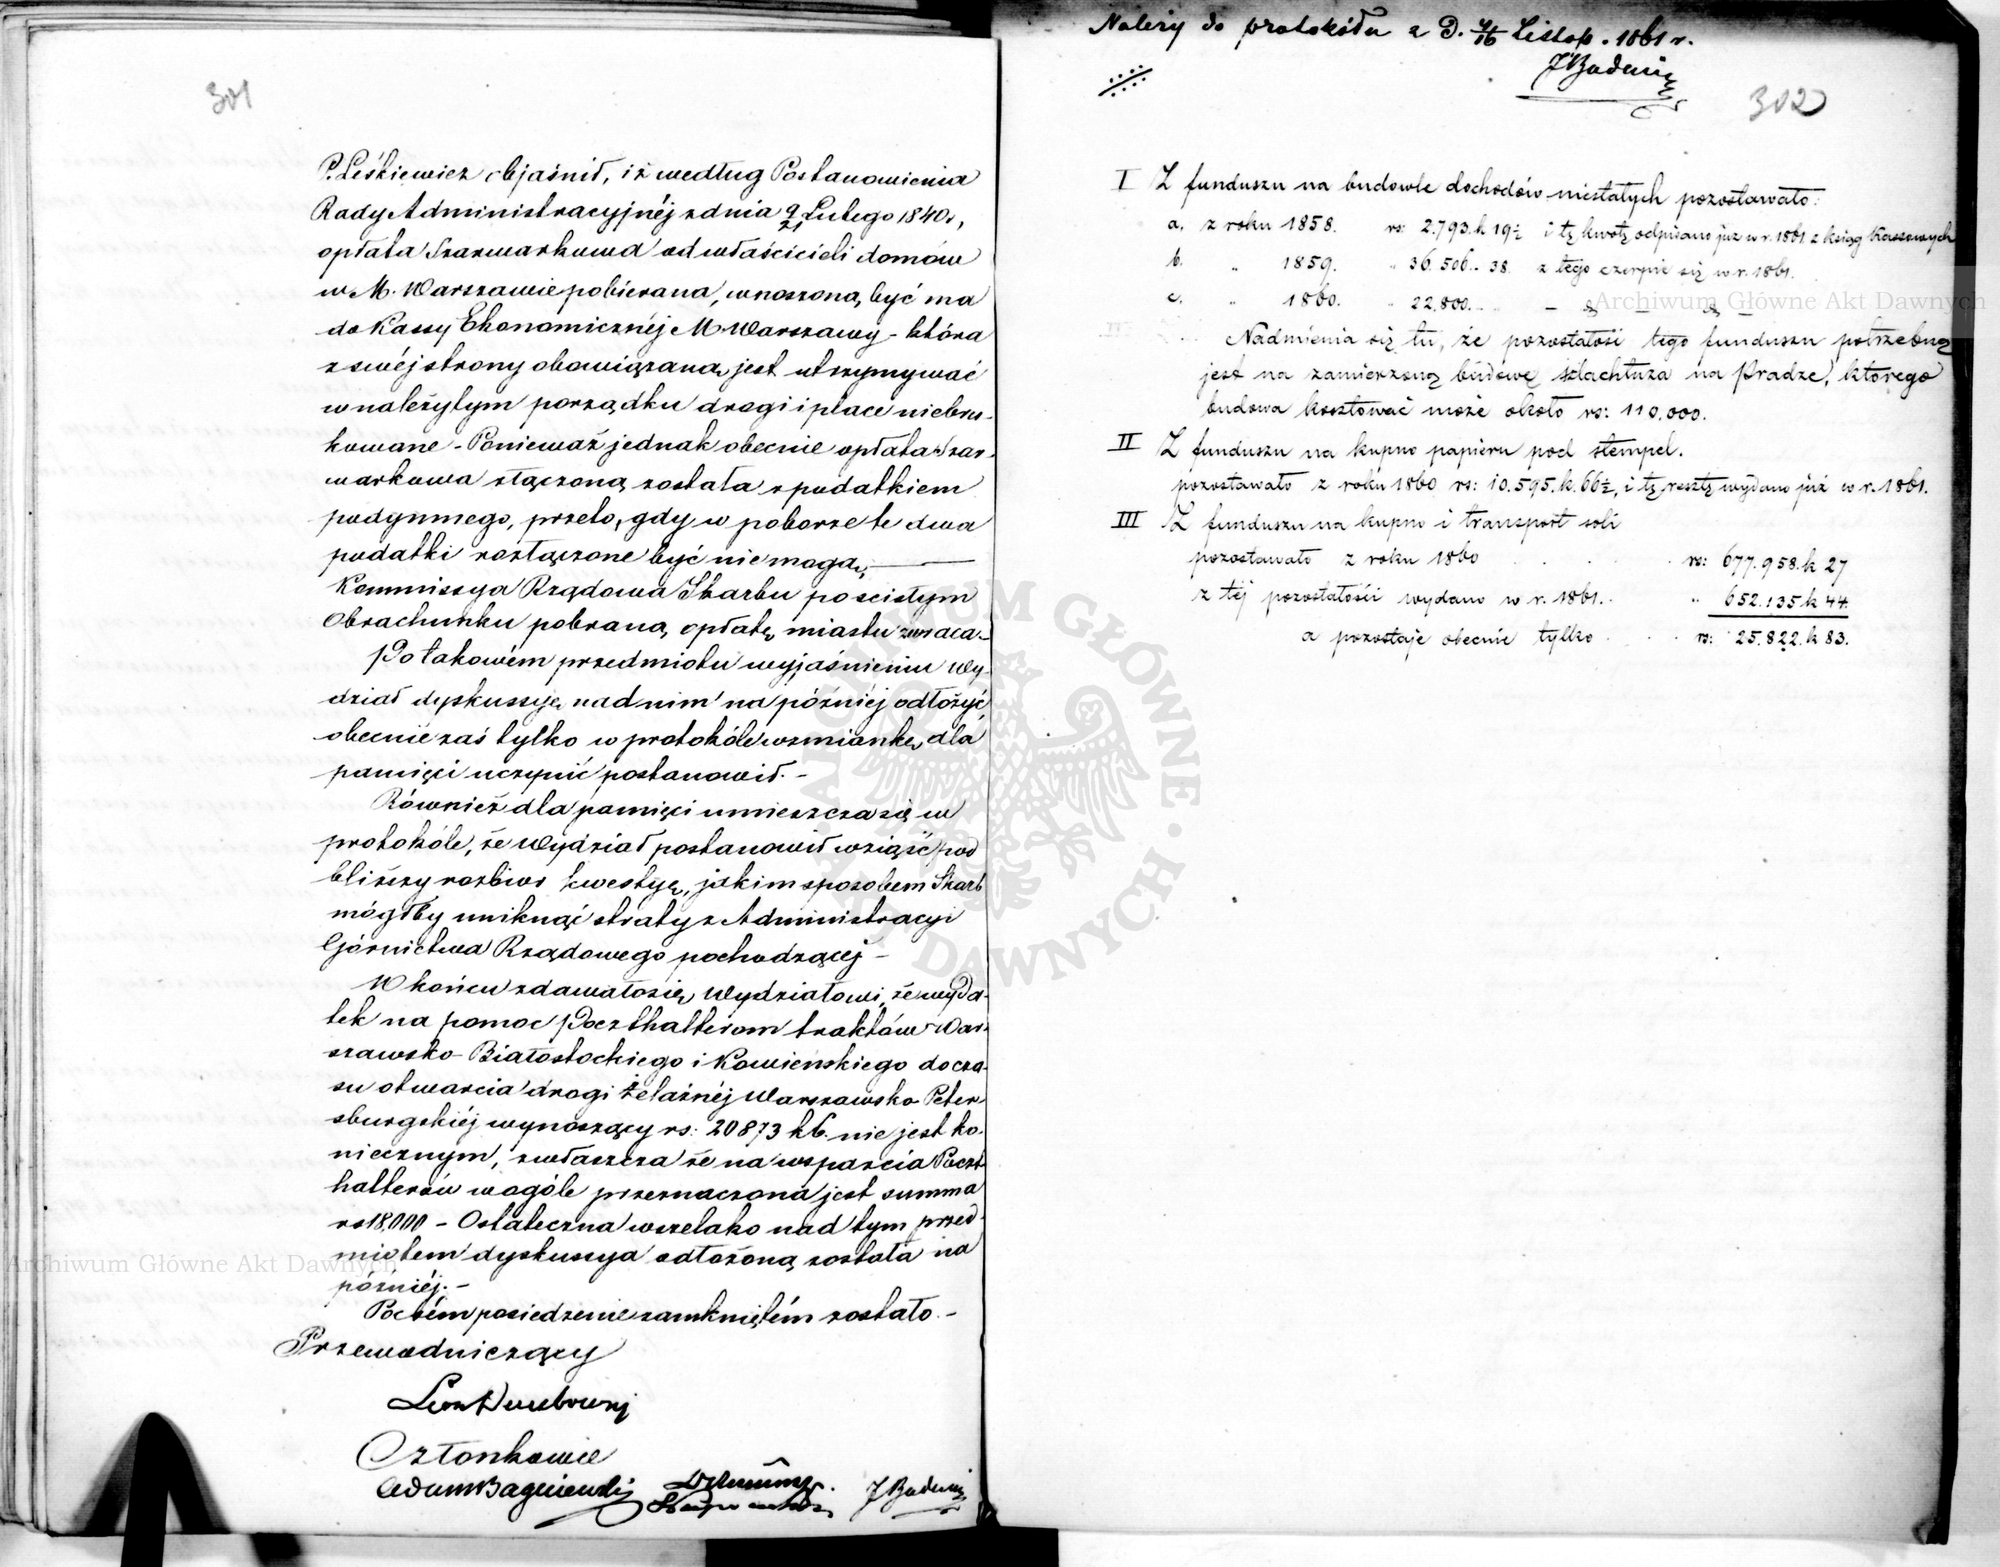 301
P. Leśkiewicz objaśnił, iż według Postanowienia
Rady Administracyjnéj z dnia 9/21 Lutego 1840 r,
opłata Szarwarkowa od właścicieli domów
w M. Warszawie pobierana, wnoszoną być ma
do Kassy Ekonomicznéj M. Warszawy - która
z swéj strony obowiązaną jest utrzymywać
w należytym porządku drogi i place niebru-
kowane - Ponieważ jednak obecnie opłata Szar-
warkowa złączoną została z podatkiem
podymnego, przeto, gdy w poborze te dwa
podatki rozłączone być nie mogą,
Kommissya Rządowa Skarbu po ścisłym
Obrachunku pobraną opłatę miastu zwraca.-
Po takowém przedmiotu wyjaśnieniu Wy-
dział dyskussyę nad nim na późniéj odłożyć,
obecnie zaś tylko w protokóle wzmiankę dla
pamięci uczynić postanowił. -
Również dla pamięci umieszcza się w
protokóle, że Wydział postanowił wziąść pod
bliższy rozbiór kwestyę, jakim sposobem Skarb
mógłby uniknąć straty z Administracyi
Górnictwa Rządowego pochodzącéj -
W końcu zdawało się Wydziałowi, że wyda-
tek na pomoc Poczthalterom traktów War-
szawsko-Białostockiego i Kowieńskiego do cza-
su otwarcia drogi żelaznéj Warszawsko Peter-
sburgskiéj wynoszący rs: 20873 k 6. nie jest ko-
niecznym, zwłaszcza że na wsparcia Poczt-
halterów w ogóle przeznaczona jest summa
rs 18,000 - Ostateczna wszelako nad tym przed-
miotem dyskussya odłożoną została na
późniéj. -
Poczém posiedzenie zamkniętém zostało. -
Przewodniczący
Leon Dembowski
Członkowie
Adam Bagniewski
J Badeni
Należy do protokółu z D. 4/16 Listop. 1861 r.
J Badeni
302
I Z funduszu na budowle dochodów niestałych pozostawało:
a. z roku 1858. rs: 2.793. k 19½ i tę kwotę odpisano już w r. 1861 z ksiąg Kassowych
b. " 1859. " 36.506.. 38. z tego czerpie się w r. 1861.
c. " 1860. " 22,800... - d° - d° -
Nadmienia się tu, że pozostałość tego funduszu potrzebną
jest na zamierzoną budowę szlachtuza na Pradze, którego
budowa kosztować może około rs: 110.000.
II Z funduszu na kupno papieru pod stempel.
pozostawało z roku 1860 rs: 10.595. k. 66½, i tę resztę wydano już w r. 1861.
III Z funduszu na kupno i transport soli
pozostawało z roku 1860 . . . . rs: 677.958. k 27
z téj pozostałości wydano w r. 1861. . " 652.135 k 44.
a pozostaje obecnie tylko . . . rs: 25.822. k 83.
Archiwum Główne Akt Dawnych
Archiwum Główne Akt Dawnych
ARCHIWUM GŁÓWNE AKT DAWNYCH